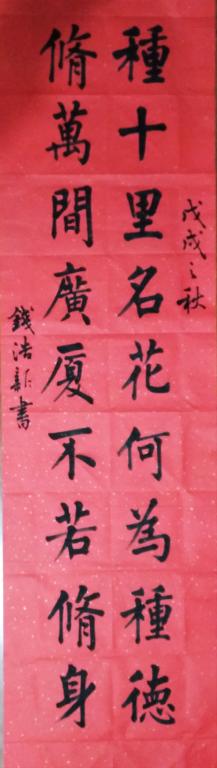 戊戌之秋
種十里名花何為種德
脩萬間廣厦不若脩身
錢浩新書